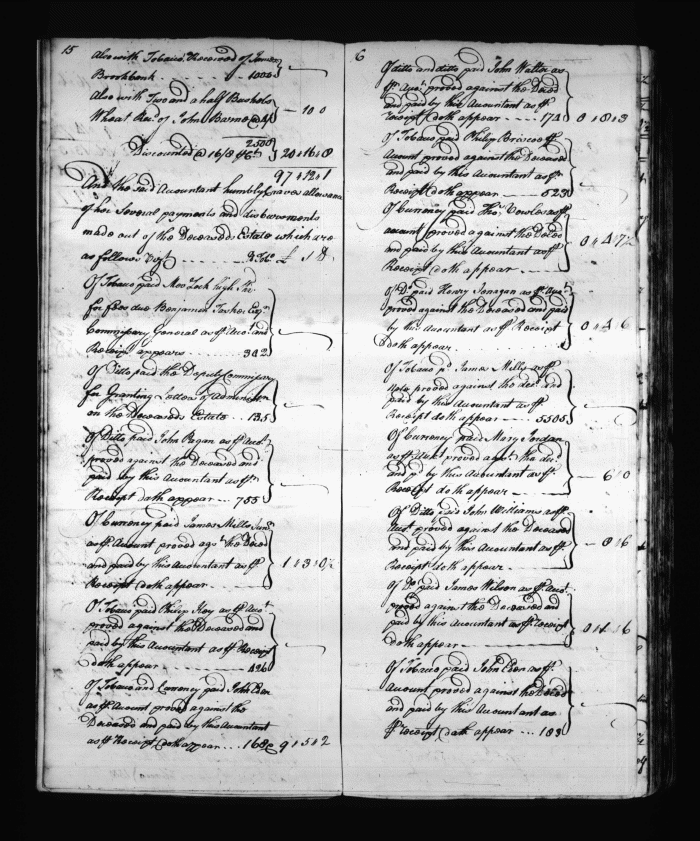 15
Also with Tobacco Received of James
Brookbank - - - - 1000
Also with Two and a half Bushels
Wheat Recd. of John Barnes @ 4/ - 10 0
2500
Discounted @ 16/8 pC. 20 " 16 " 8
97 " 12 " 1
And the said Accountant humbly Craves allowance
of her Several payments and disbursments
made out of the Deceaseds Estate which are
as follows Vizt. - - £ S
Of Tobacco paid
for fees due Benjamin Tasker Esqr.
Commissary General as pr. Acct. and
Receipt appears - - - - 302
Of Ditto paid the Deputy Commissary
for Granting Letters of Administion
on the Deceaseds Estate - - 135
Of Ditto paid John Pagan as pr. Acct.
proved against the Deceased and
paid by this Accountant as pr.
Receipt doth appear - - - 755
Of Currency paid James Mills
as pr. Account proved agst. the Deced
and paid by this Accountant as pr.
Receipt doth appear - - -
Of Tobacco paid Philip Key as pr. Acct.
proved against the Deceased and
paid by this Accountant as pr. Receipt
doth appear - - - - 426
Of Tobacco and Currency paid John Eden
as pr. Account proved against the
Deceased and paid by this Accountant
as pr. Receipt doth appear - - - 168 9 " 5 " 2
6
Of ditto and ditto paid John Walter as
pr. Acct. proved against the Deced
and paid by this Accountant as pr.
Receipt doth appear - - - 172 0 " 8 " 3
Of Tobacco paid Philip Briscoe pr.
Account proved against the Deceased
and paid by this Accountant as pr.
Receipt doth appear - - - 523
Of Currency paid Thos. Bowles as pr.
account proved against the Deced
and paid by this Accountant as pr.
Receipt doth appear - - -
Of Do. paid Henry Jernegan as pr. Acct.
proved against the Deceased and paid
by this Accountant as pr. Receipt
doth appear - - - - 0 " 4 " 6
Of Tobacco pd. James Mills as pr.
Note proved against the decd. and
paid by this Accountant as pr.
Receipt doth appear - - - 5505
Of Currency paid Mary Jordan
as pr. Acct. proved agst. the decd.
and pd. by this Accountant as pr.
Receipt doth appear - - - - 6 " 0
Of Ditto paid John Williams as pr.
Acct. proved against the Deceased
and paid by this Accountant as pr.
Receipt doth appear - - - - 8 " 6
Of Do. paid James Wilson as pr. Acct.
proved against the Deceased and
paid by this Accountant as pr. Receipt
doth appear - - - -
Of Tobacco paid John Eden as pr.
Account proved against the Deced
and paid by this Accountant as
pr. Receipt doth appear - - - 103